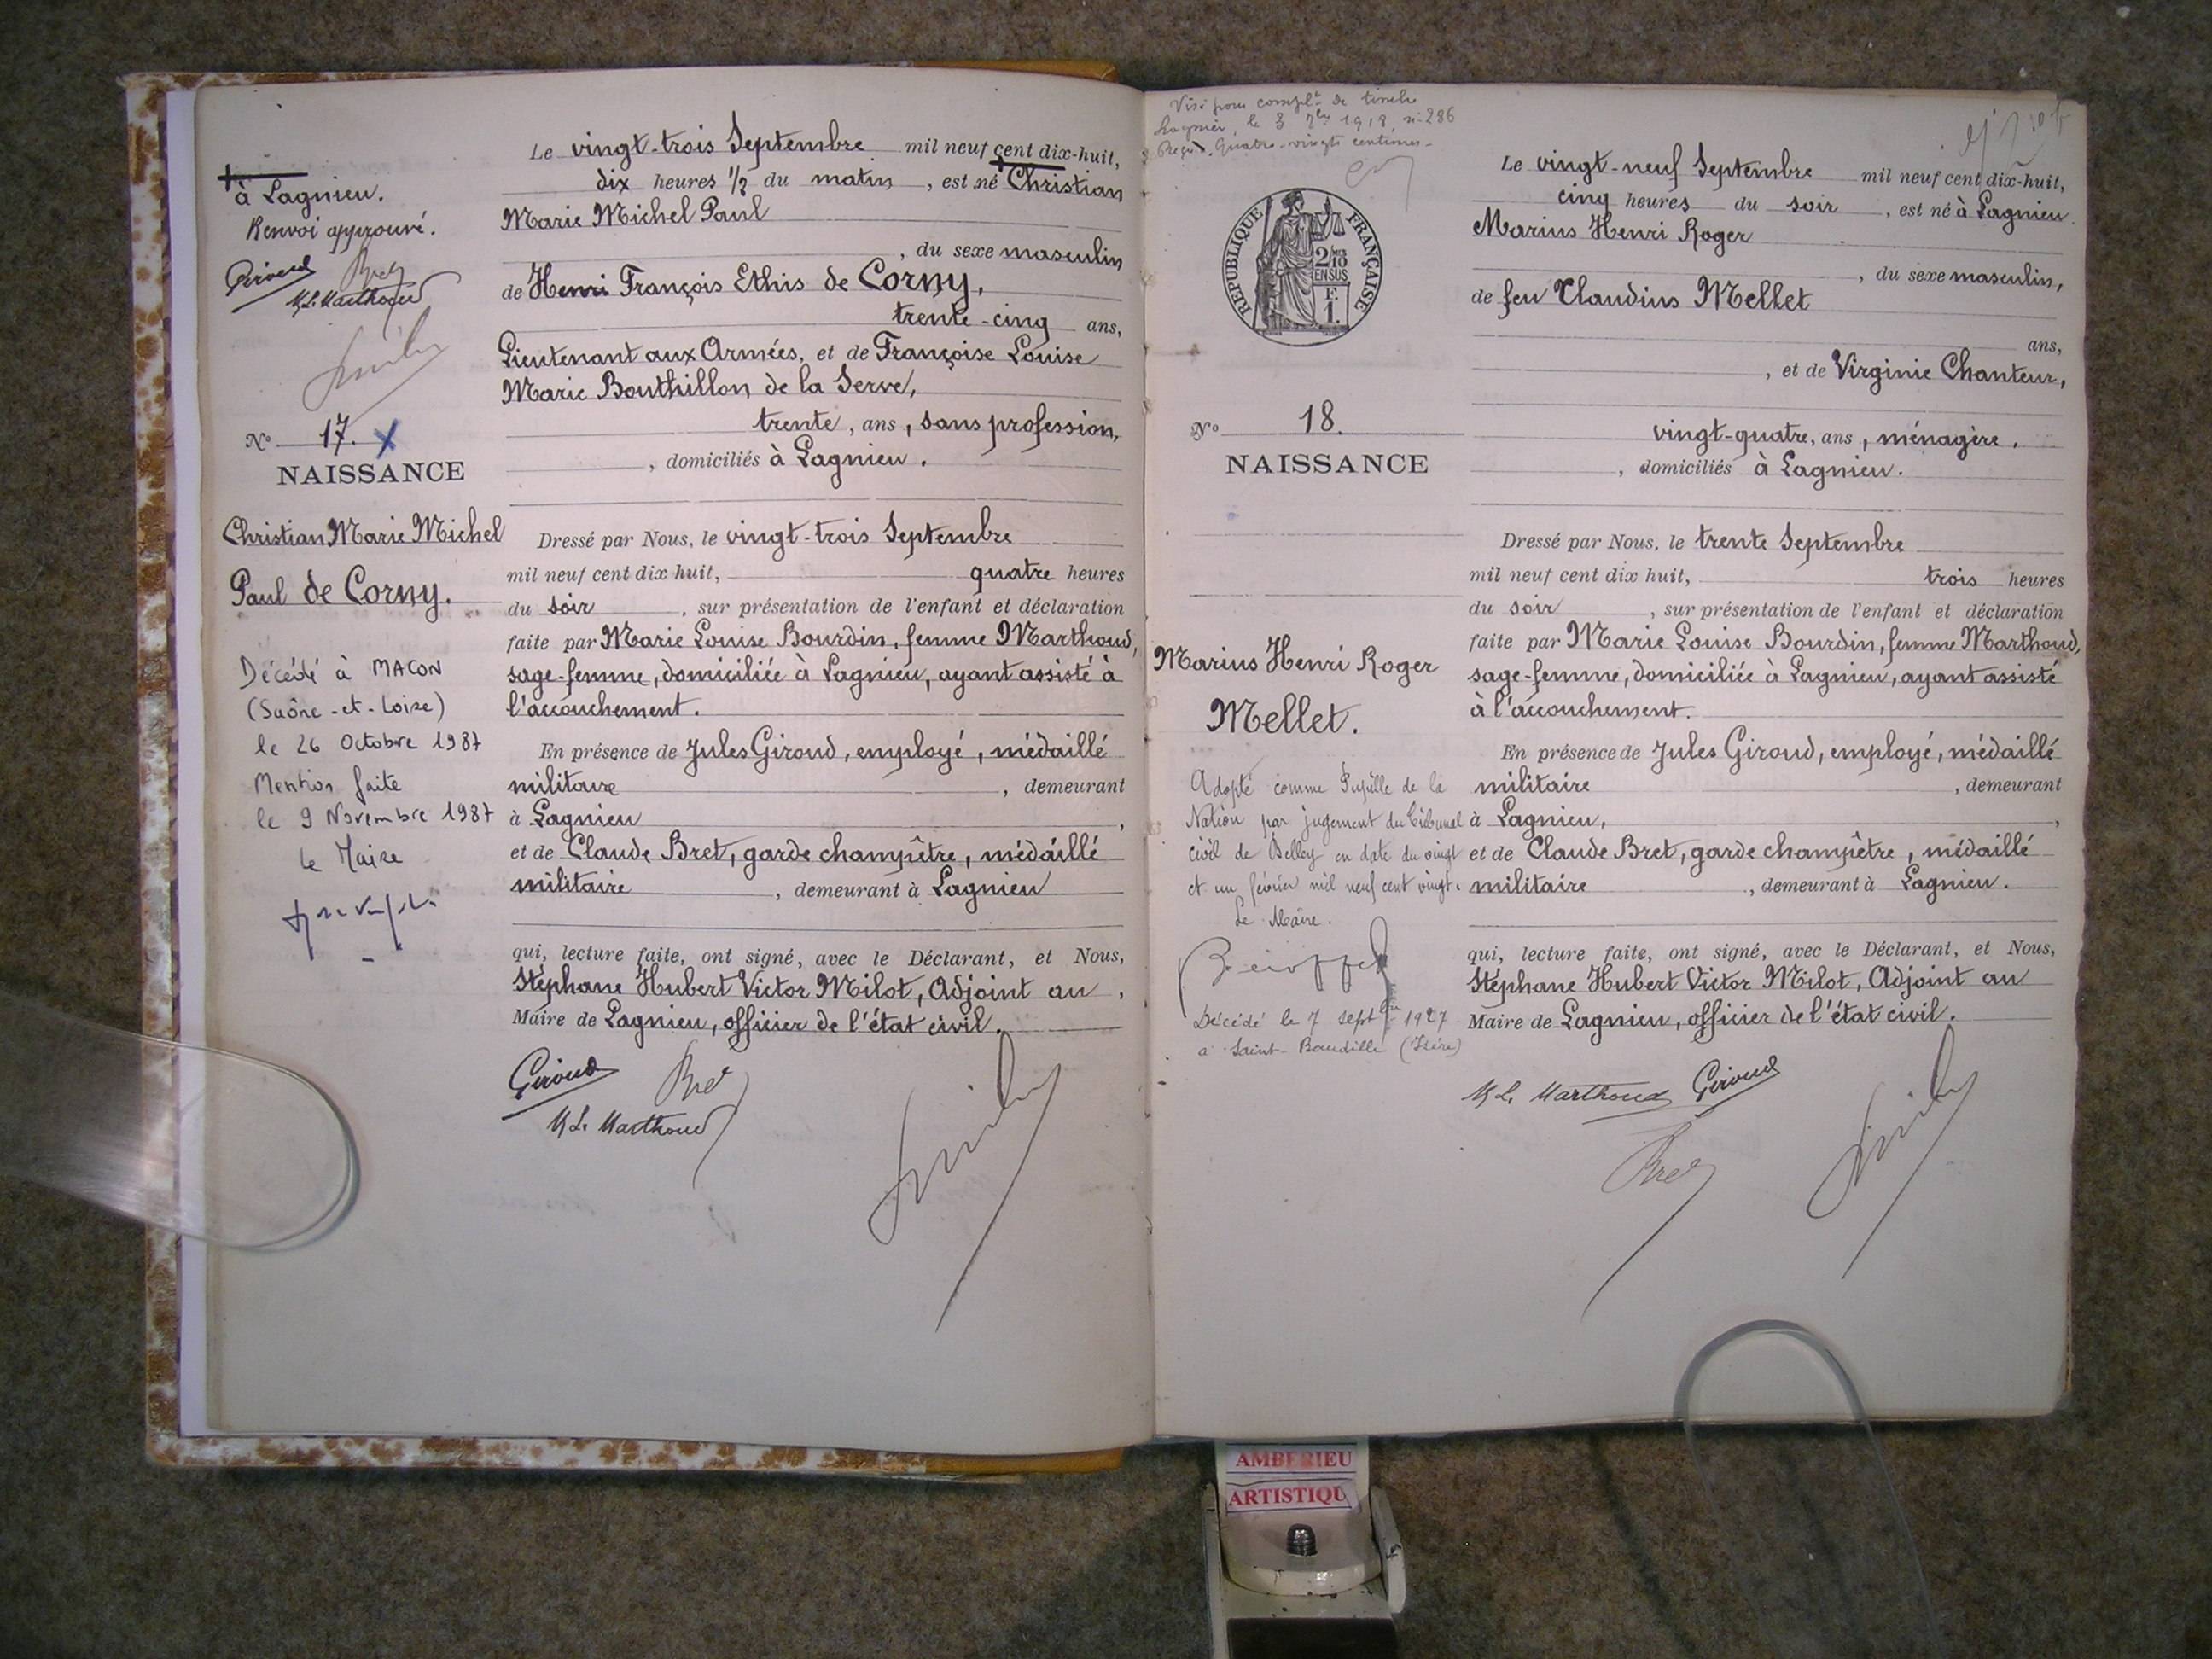 à Lagnieu.
Renvoi approuvé.
Giroud Bret
M.L. Marthoud
N° 17. X
NAISSANCE
Christian Marie Michel
Paul de Corny.
Décédé à MACON
(Saône-et-Loire)
le 26 Octobre 1987
Mention faite
le 9 Novembre 1987
Le Maire
Le vingt-trois Septembre mil neuf cent dix-huit,
dix heures 1/2 du matin, est né Christian
Marie Michel Paul
, du sexe masculin
de Henri François Ethis de Corny,
trente-cinq ans,
Lieutenant aux Armées, et de Françoise Louise
Marie Bouthillon de la Serve,
trente, ans, sans profession,
, domiciliés à Lagnieu.
Dressé par Nous, le vingt-trois Septembre
mil neuf cent dix huit, quatre heures
du soir, sur présentation de l'enfant et déclaration
faite par Marie Louise Bourdin, femme Marthoud,
sage-femme, domiciliée à Lagnieu, ayant assisté à
l'accouchement.
En présence de Jules Giroud, employé, médaillé
militaire, demeurant
à Lagnieu,
et de Claude Bret, garde champêtre, médaillé
militaire, demeurant à Lagnieu
qui, lecture faite, ont signé, avec le Déclarant, et Nous,
Stéphane Hubert Victor Milot, Adjoint au,
Maire de Lagnieu, officier de l'état civil.
Giroud Bret
M.L. Marthoud
Visé pour complt de timbre
Lagnieu, le 3 1918 n° 286
Reçu. Quatre-vingts centimes
RÉPUBLIQUE FRANÇAISE
2/10
EN SUS
F.
1.
N° 18.
NAISSANCE
Marius Henri Roger
Mellet.
Adopté comme Pupille de la
Nation par jugement du Tribunal
civil de Belley en date du vingt
et un février mil neuf cent vingt.
Le Maire.
Décédé le 7 septbre 1927
à Saint-Baudille (Isère)
Le vingt-neuf Septembre mil neuf cent dix-huit,
cinq heures du soir, est né à Lagnieu
Marius Henri Roger
, du sexe masculin,
de feu Claudius Mellet
ans,
, et de Virginie Chanteur,
vingt-quatre, ans, ménagère.
, domiciliés à Lagnieu.
Dressé par Nous, le trente Septembre
mil neuf cent dix huit, trois heures
du soir, sur présentation de l'enfant et déclaration
faite par Marie Louise Bourdin, femme Marthoud,
sage-femme, domiciliée à Lagnieu, ayant assisté
à l'accouchement.
En présence de Jules Giroud, employé, médaillé
militaire, demeurant
à Lagnieu,
et de Claude Bret, garde champêtre, médaillé
militaire, demeurant à Lagnieu.
qui, lecture faite, ont signé, avec le Déclarant, et Nous,
Stéphane Hubert Victor Milot, Adjoint au
Maire de Lagnieu, officier de l'état civil.
M.L. Marthoud Giroud
Bret
AMBERIEU
ARTISTIQU